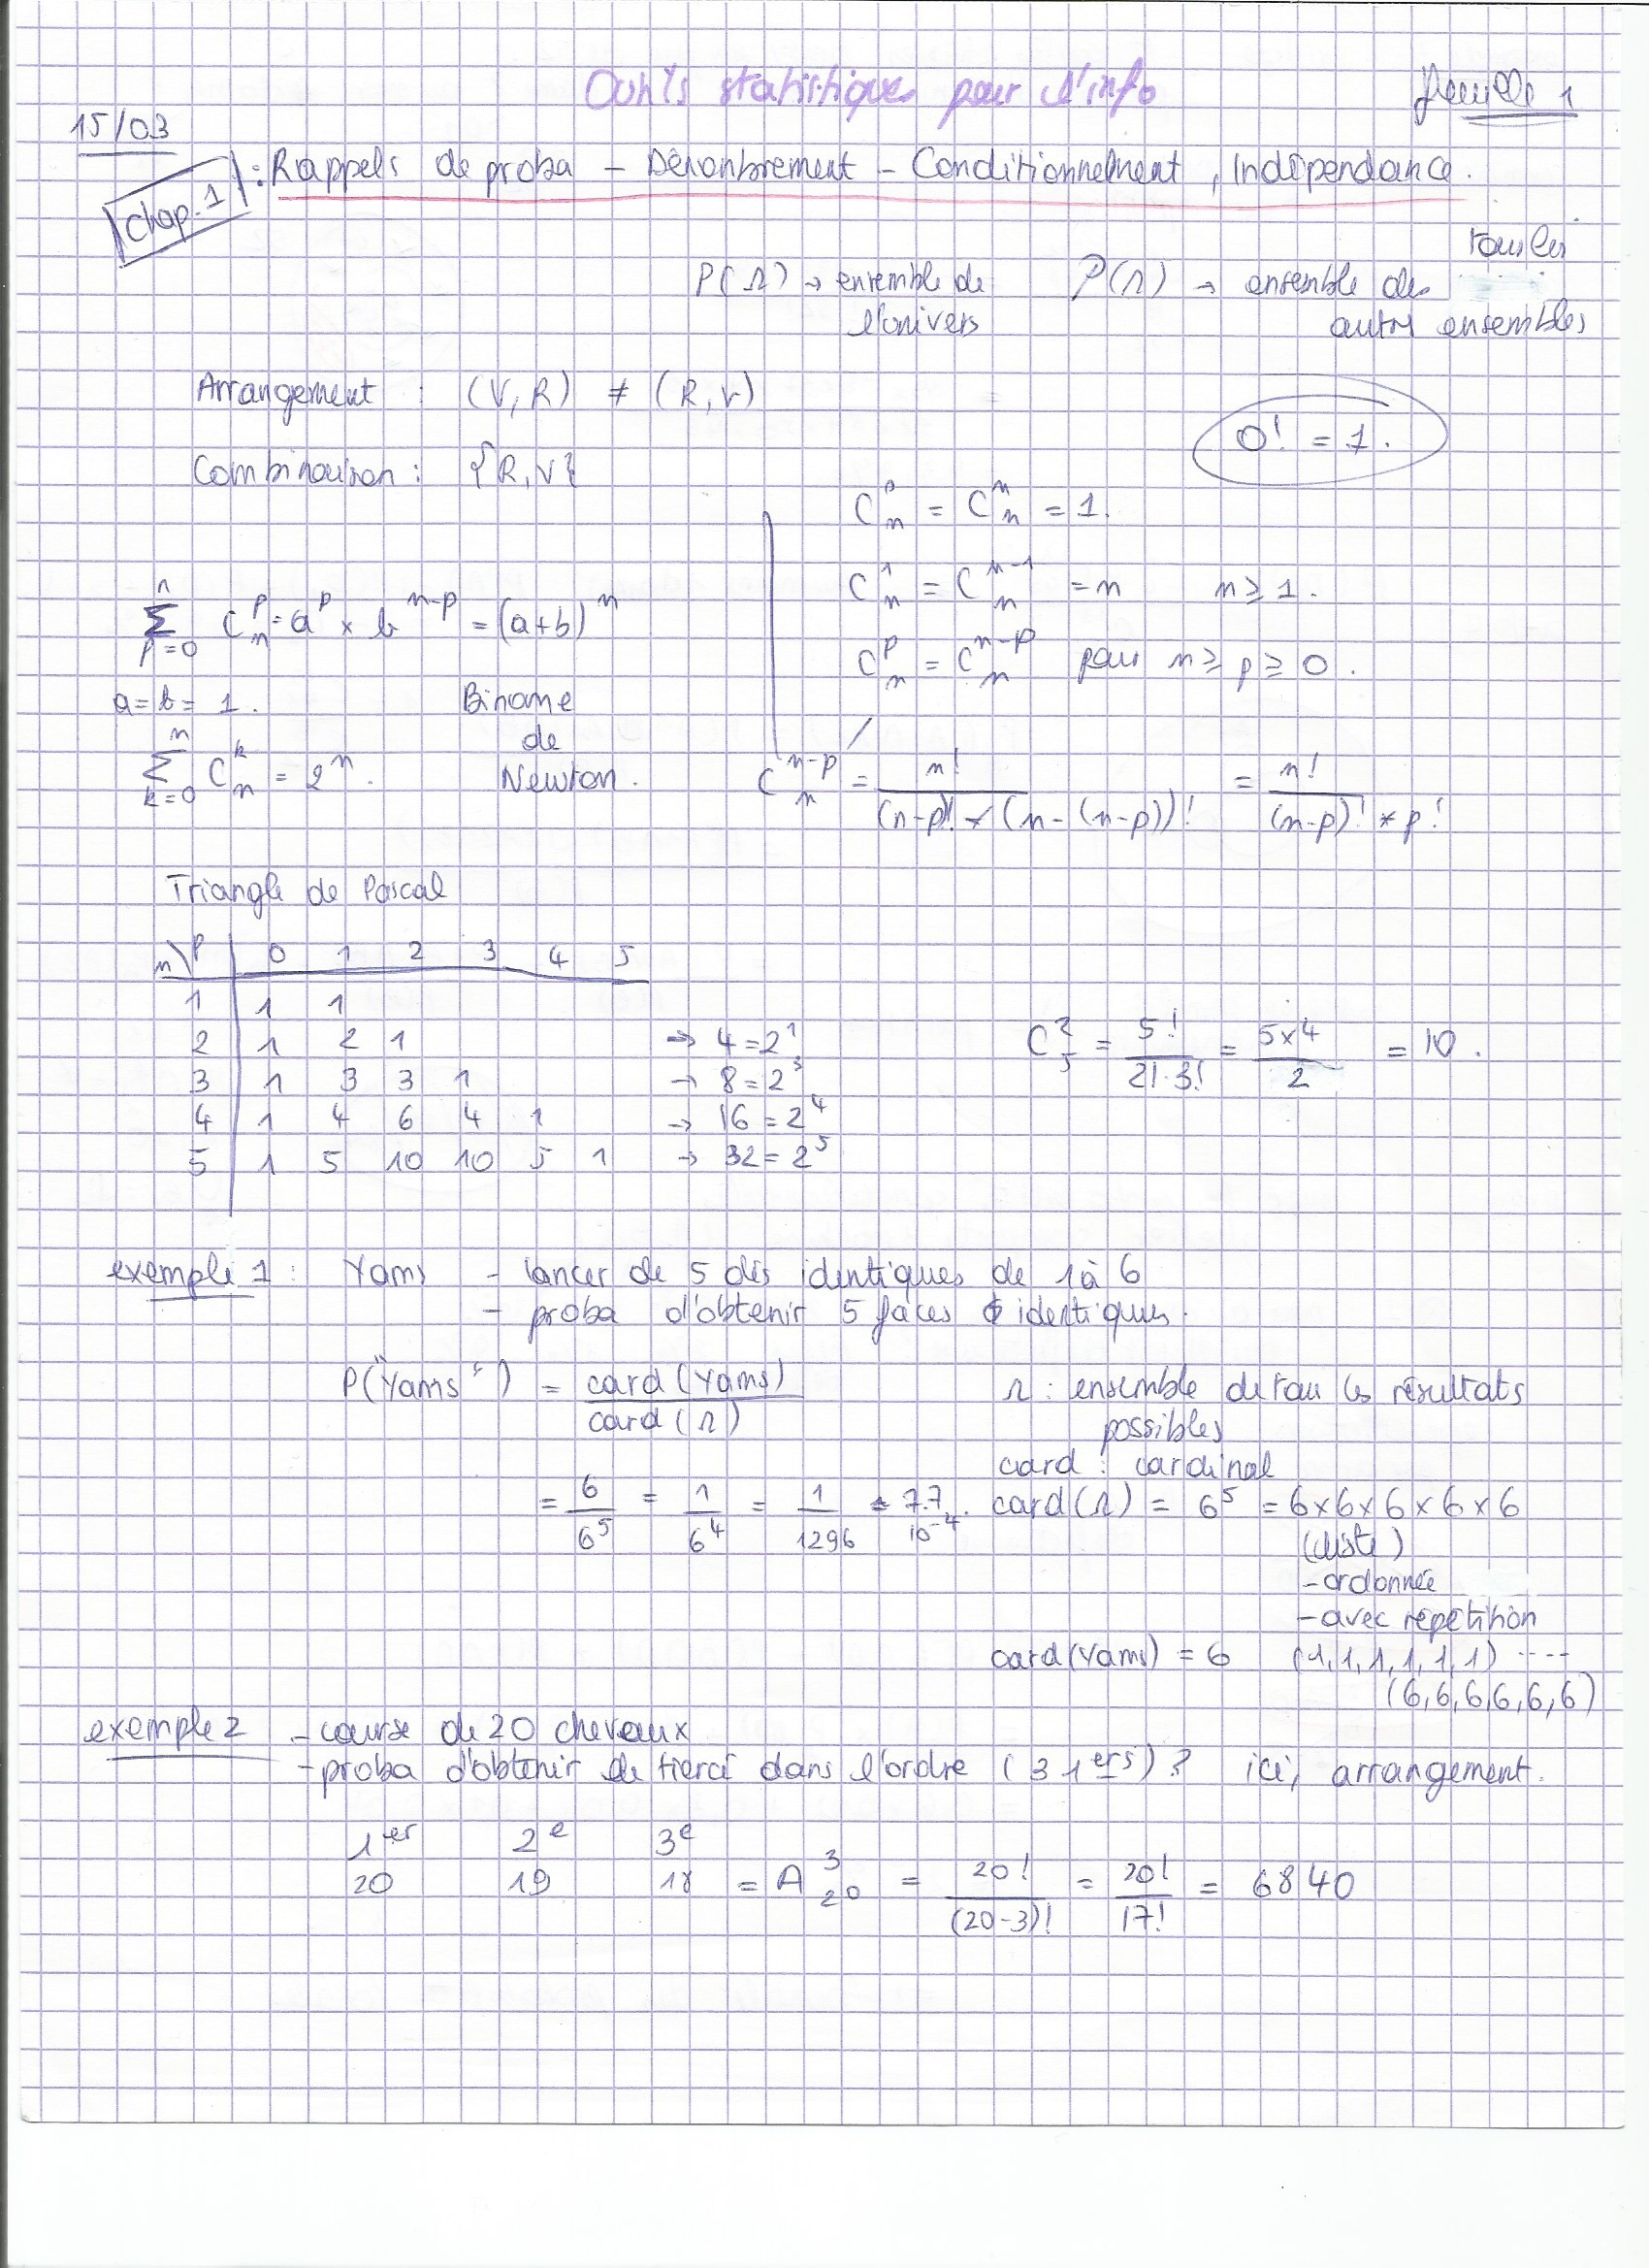 Outils statistiques pour l'info
feuille 1
15/03
Chap. 1 : Rappels de proba - Dénombrement - Conditionnelment, Indépendance.
P(Ω) → ensemble de l'univers
𝒫(Ω) → ensemble des tous les autres ensembles
Arrangement : (V, R) ≠ (R, V)
0! = 1.
Combinaison : {R, V}
C_n^0 = C_n^n = 1.
C_n^1 = C_n^{n-1} = n n ≥ 1.
∑_{p=0}^n C_n^p = a^p × b^{n-p} = (a+b)^n
C_n^p = C_n^{n-p} pour n ≥ p ≥ 0.
a = b = 1. Binome de Newton.
∑_{k=0}^n C_n^k = 2^n.
C_n^{n-p} = n! / (n-p)! * (n-(n-p))! = n! / (n-p)! * p!
Triangle de Pascal
n\p 0 1 2 3 4 5
1 1 1
2 1 2 1 → 4 = 2^1
3 1 3 3 1 → 8 = 2^3
4 1 4 6 4 1 → 16 = 2^4
5 1 5 10 10 5 1 → 32 = 2^5
C_5^2 = 5! / 2!·3! = 5×4 / 2 = 10.
exemple 1 : Yams - lancer de 5 dés identiques de 1 à 6
- proba d'obtenir 5 faces identiques.
P("Yams") = card(Yams) / card(Ω)
Ω : ensemble de tous les résultats possibles
card : cardinal
= 6 / 6^5 = 1 / 6^4 = 1 / 1296 = 7.7 10^-4.
card(Ω) = 6^5 = 6×6×6×6×6
(liste)
- ordonnée
- avec répétition
card(Yams) = 6 (1,1,1,1,1,1) ....
(6,6,6,6,6,6)
exemple 2 - course de 20 chevaux
- proba d'obtenir le tiercé dans l'ordre (3 1ers) ? ici, arrangement.
1er 2e 3e
20 19 18 = A_20^3 = 20! / (20-3)! = 20! / 17! = 6840